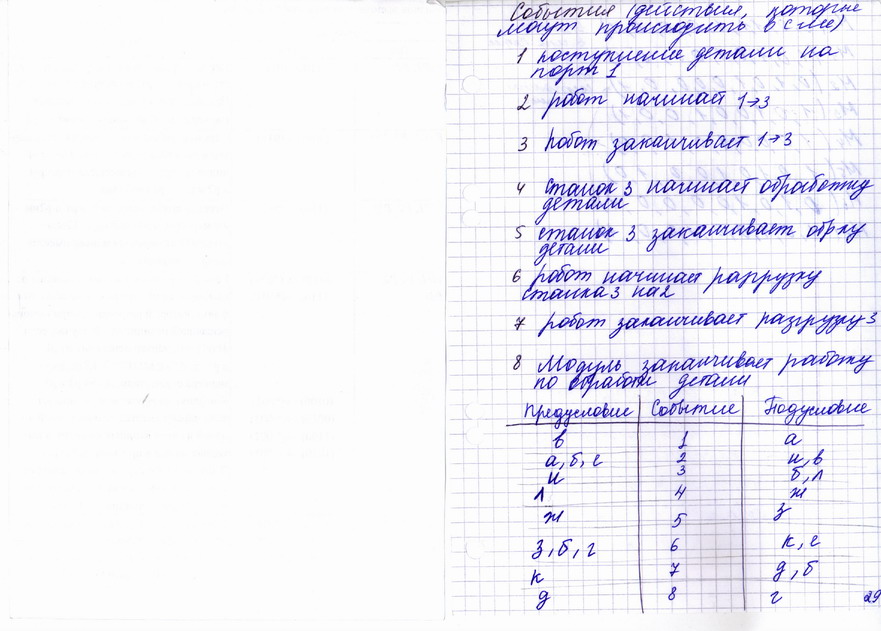 События (действия, которые
могут происходить в с-ме)
1 поступление детали на
порт 1
2 робот начинает 1→3
3 робот заканчивает 1→3
4 станок 3 начинает обработку
детали
5 станок 3 заканчивает обр-ку
детали
6 робот начинает разгрузку
станка 3 на 2
7 робот заканчивает разгрузку 3
8 Модуль заканчивает работу
по обработки детали
Предусловие Событие Подусловие
в 1 а
а, б, е 2 и, в
и 3 б, л
л 4 ж
ж 5 з
з, б, г 6 к, е
к 7 д, б
д 8 г
29